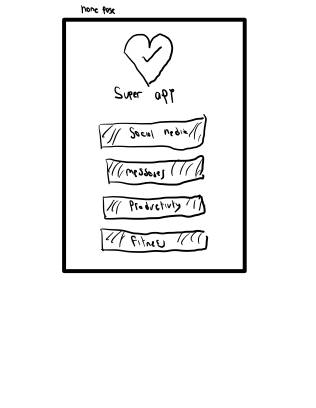 home page
Super api
Social media
messages
Productivity
Fitness